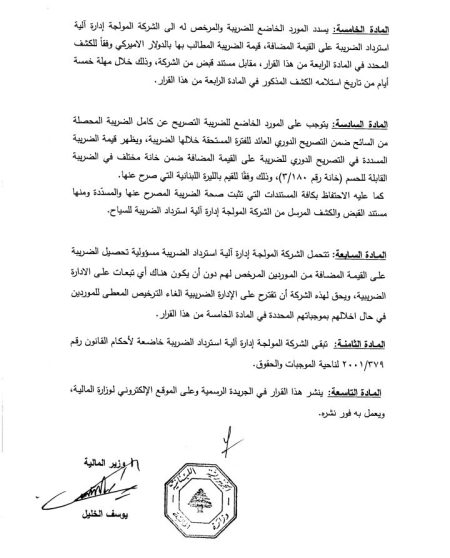 المادة الخامسة: يسدد المورد الخاضع للضريبة والمرخص له الى الشركة المولجة إدارة آلية
استرداد الضريبة على القيمة المضافة، قيمة الضريبة المطالب بها بالدولار الاميركي وفقاً للكشف
المحدد في المادة الرابعة من هذا القرار، مقابل مستند قبض من الشركة، وذلك خلال مهلة خمسة
أيام من تاريخ استلامه الكشف المذكور في المادة الرابعة من هذا القرار.
المادة السادسة: يتوجب على المورد الخاضع للضريبة التصريح عن كامل الضريبة المحصلة
من السائح ضمن التصريح الدوري العائد للفترة المستحقة خلالها الضريبة، ويظهر قيمة الضريبة
المسددة في التصريح الدوري للضريبة على القيمة المضافة ضمن خانة مختلف في الضريبة
القابلة للحسم (خانة رقم ٣/١٨٠)، وذلك وفقًا للقيم بالليرة اللبنانية التي صرح عنها.
كما عليه الاحتفاظ بكافة المستندات التي تثبت صحة الضريبة المصرح عنها والمسدّدة ومنها
مستند القبض والكشف المرسل من الشركة المولجة إدارة آلية استرداد الضريبة للسياح.
المادة السابعة: تتحمل الشركة المولجة إدارة آلية استرداد الضريبة مسؤولية تحصيل الضريبة
على القيمة المضافة من الموردين المرخص لهم دون أن يكون هناك أي تبعات على الادارة
الضريبية، ويحق لهذه الشركة أن تقترح على الإدارة الضريبية الغاء الترخيص المعطى للموردين
في حال اخلالهم بموجباتهم المحددة في المادة الخامسة من هذا القرار.
المادة الثامنة: تبقى الشركة المولجة إدارة آلية استرداد الضريبة خاضعة لأحكام القانون رقم
٢٠٠١/٣٧٩ لناحية الموجبات والحقوق.
المادة التاسعة: ينشر هذا القرار في الجريدة الرسمية وعلى الموقع الإلكتروني لوزارة المالية،
ويعمل به فور نشره.
وزير المالية
يوسف الخليل
الجمهورية اللبنانية
وزارة المالية